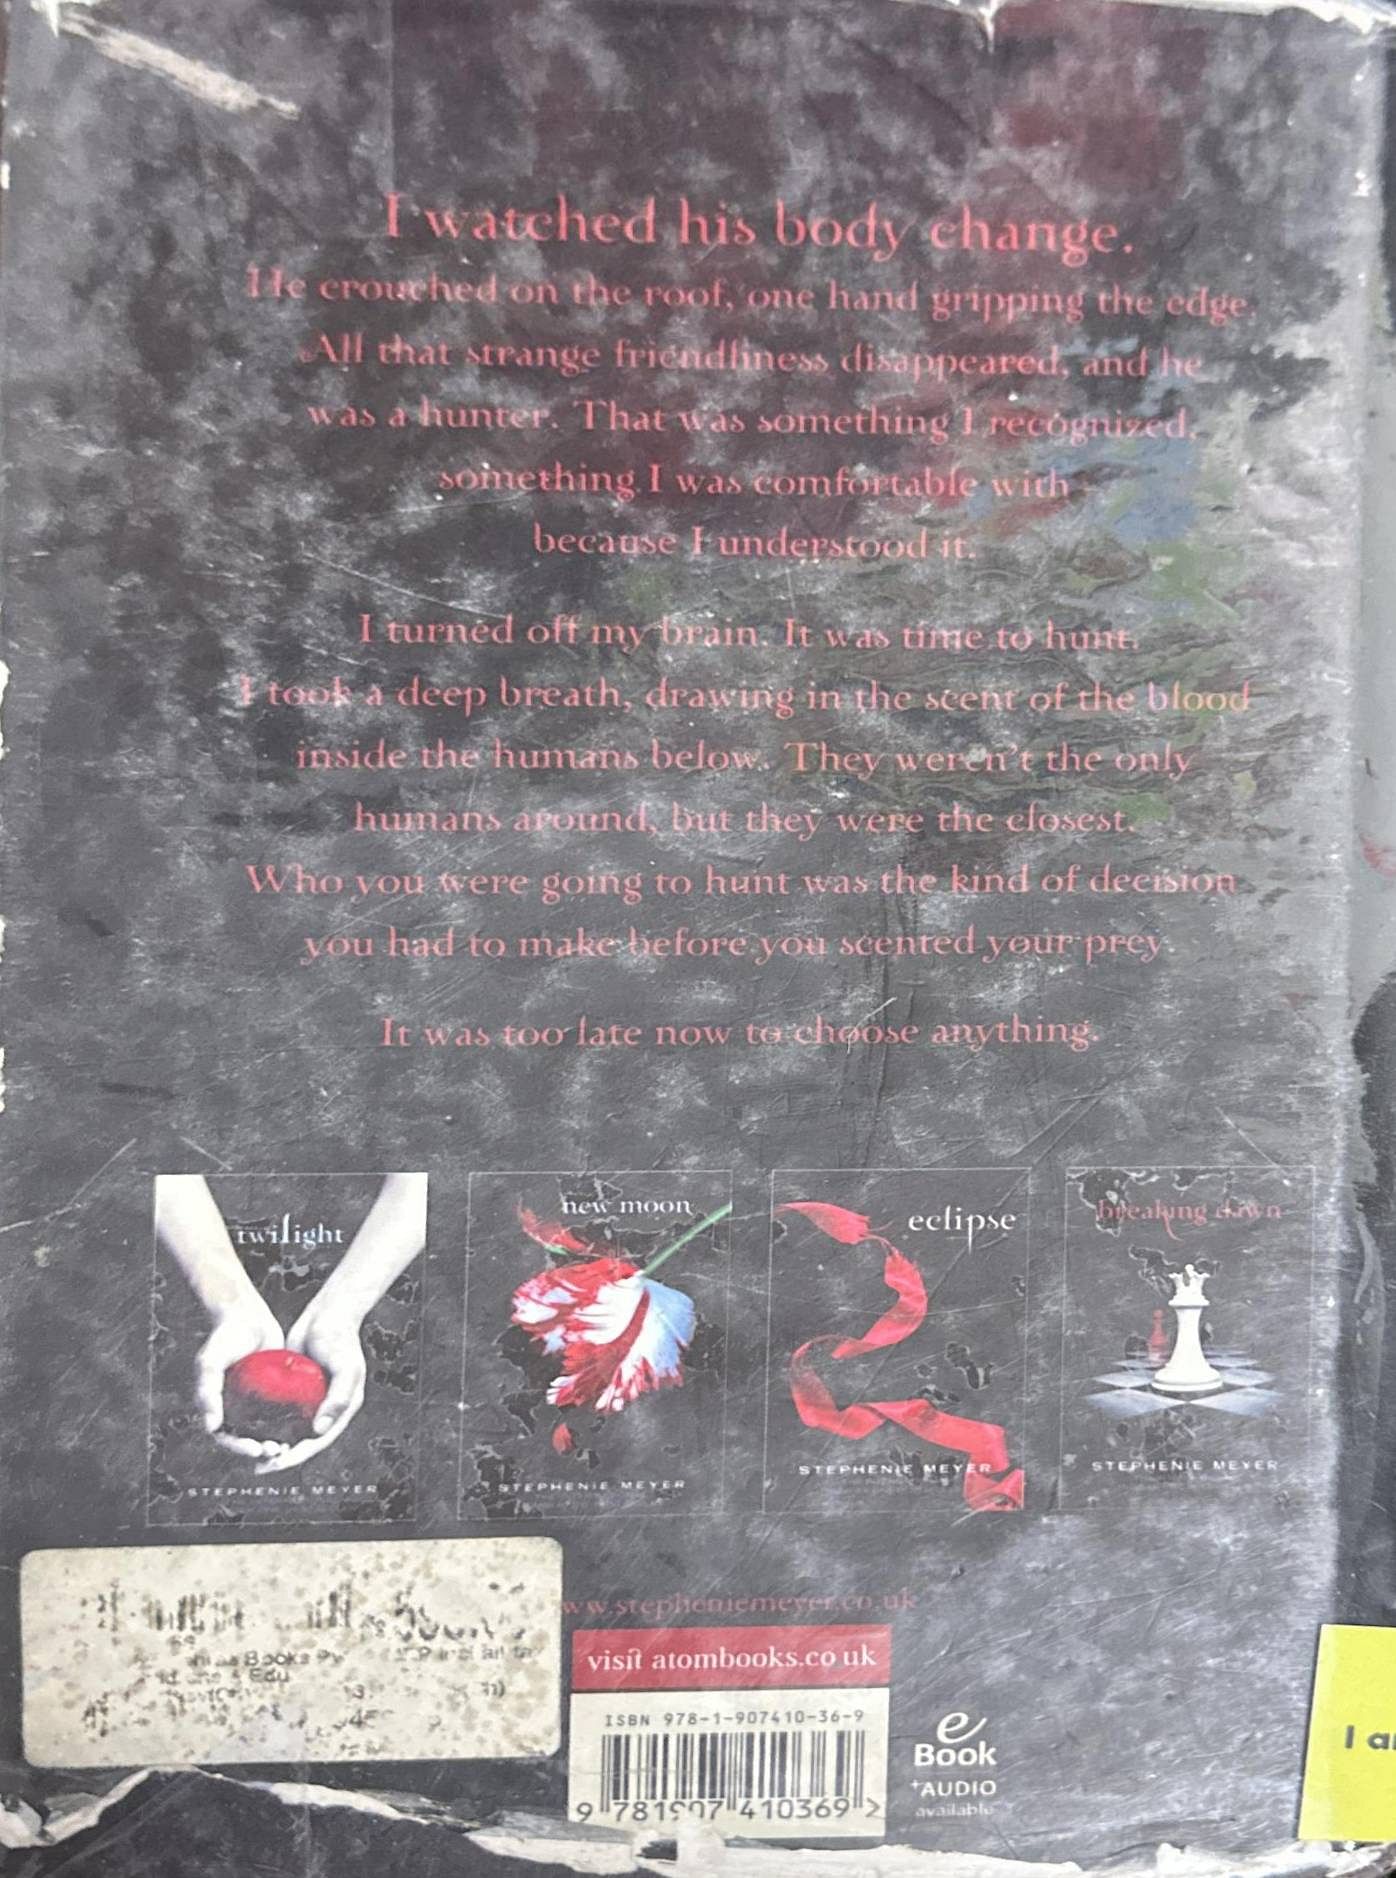 I watched his body change.
He crouched on the roof, one hand gripping the edge.
All that strange friendliness disappeared, and he
was a hunter. That was something I recognized,
something I was comfortable with
because I understood it.
I turned off my brain. It was time to hunt.
I took a deep breath, drawing in the scent of the blood
inside the humans below. They weren't the only
humans around, but they were the closest.
Who you were going to hunt was the kind of decision
you had to make before you scented your prey.
It was too late now to choose anything.
twilight
STEPHENIE MEYER
new moon
STEPHENIE MEYER
eclipse
STEPHENIE MEYER
breaking dawn
STEPHENIE MEYER
Books
Edu
www.stepheniemeyer.co.uk
visit atombooks.co.uk
ISBN 978-1-907410-36-9
9 781907 410369 >
eBook
+AUDIO
available
I a